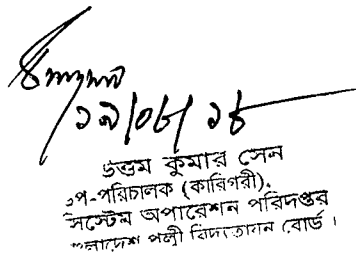 ১৯/০৮/১৮
উত্তম কুমার সেন
উপ-পরিচালক (কারিগরী),
সিস্টেম অপারেশন পরিদপ্তর
বাংলাদেশ পল্লী বিদ্যুতায়ন বোর্ড।